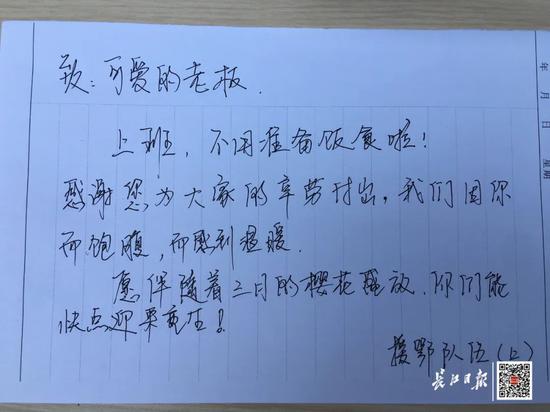 致:可爱的老板.
上班,不用准备饭食啦!
感谢您为大家的辛劳付出,我们因你
而饱腹,而感到温暖.
愿伴随着三月的樱花放.你们能
快点迎来生!
援鄂队伍(上)
年 月 日 星期
长江日报